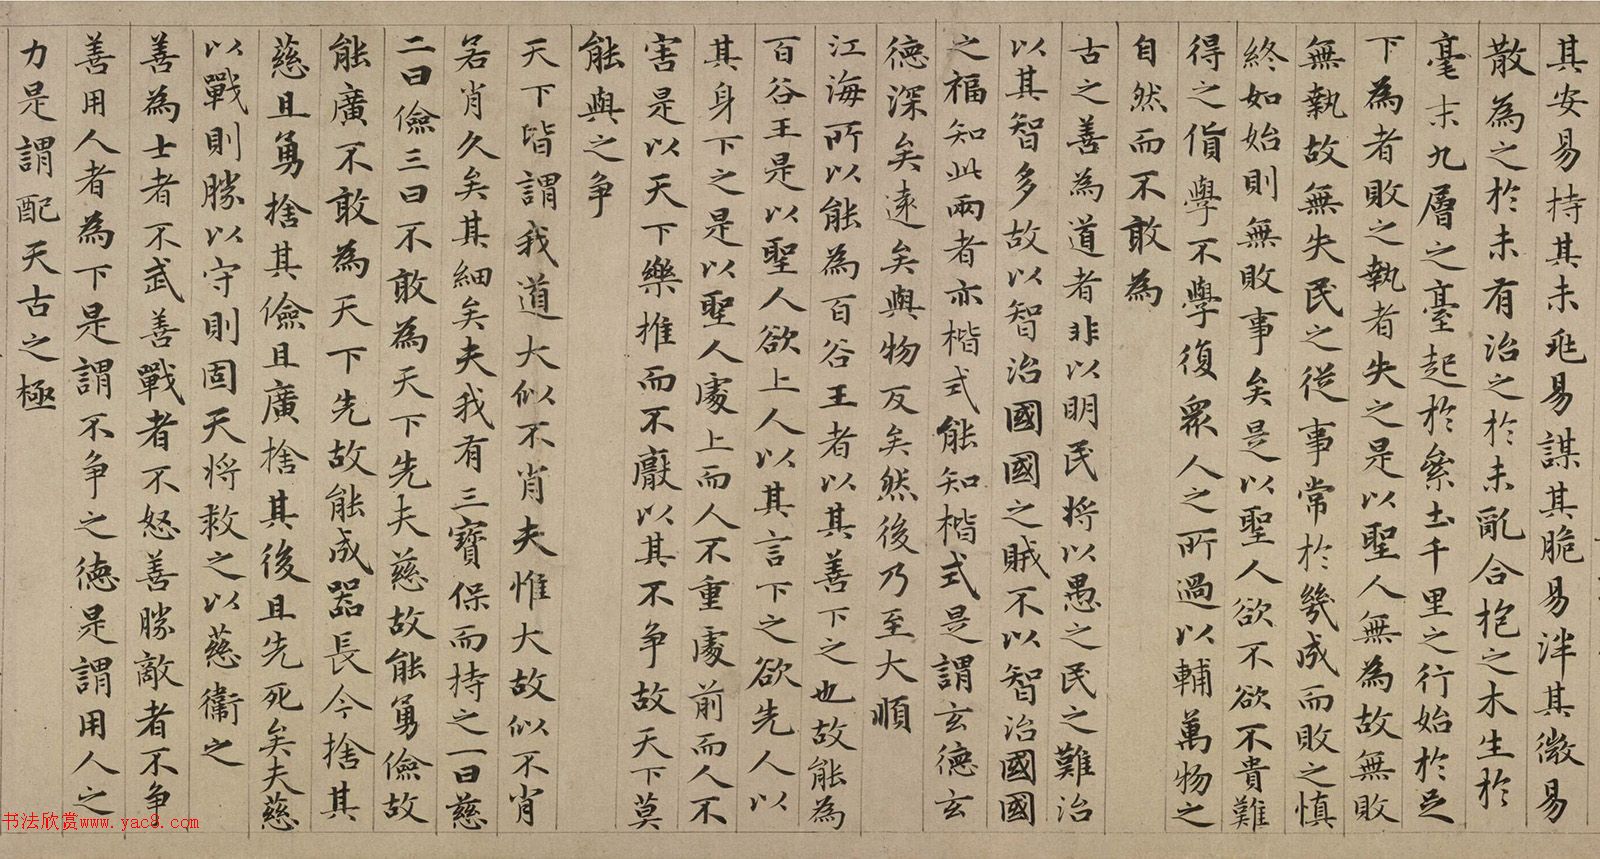 其安易持其未兆易謀其脆易泮其微易
散為之於未有治之於未亂合抱之木生於
毫末九層之臺起於絫土千里之行始於足
下為者敗之執者失之是以聖人無為故無敗
無執故無失民之從事常於幾成而敗之慎
終如始則無敗事矣是以聖人欲不欲不貴難
得之貨學不學復眾人之所過以輔萬物之
自然而不敢為
古之善為道者非以明民將以愚之民之難治
以其智多故以智治國國之賊不以智治國國
之福知此兩者亦楷式能知楷式是謂玄德玄
德深矣遠矣與物反矣然後乃至大順
江海所以能為百谷王者以其善下之也故能為
百谷王是以聖人欲上人以其言下之欲先人以
其身下之是以聖人處上而人不重處前而人不
害是以天下樂推而不厭以其不争故天下莫
能與之争
天下皆謂我道大似不肖夫惟大故似不肖
若肖久矣其細矣夫我有三寶保而持之一曰慈
二曰儉三曰不敢為天下先夫慈故能勇儉故
能廣不敢為天下先故能成器長今捨其
慈且勇捨其儉且廣捨其後且先死矣夫慈
以戰則勝以守則固天將救之以慈衛之
善為士者不武善戰者不怒善勝敵者不争
善用人者為下是謂不争之德是謂用人之
力是謂配天古之極
书法欣赏www.yac8.com